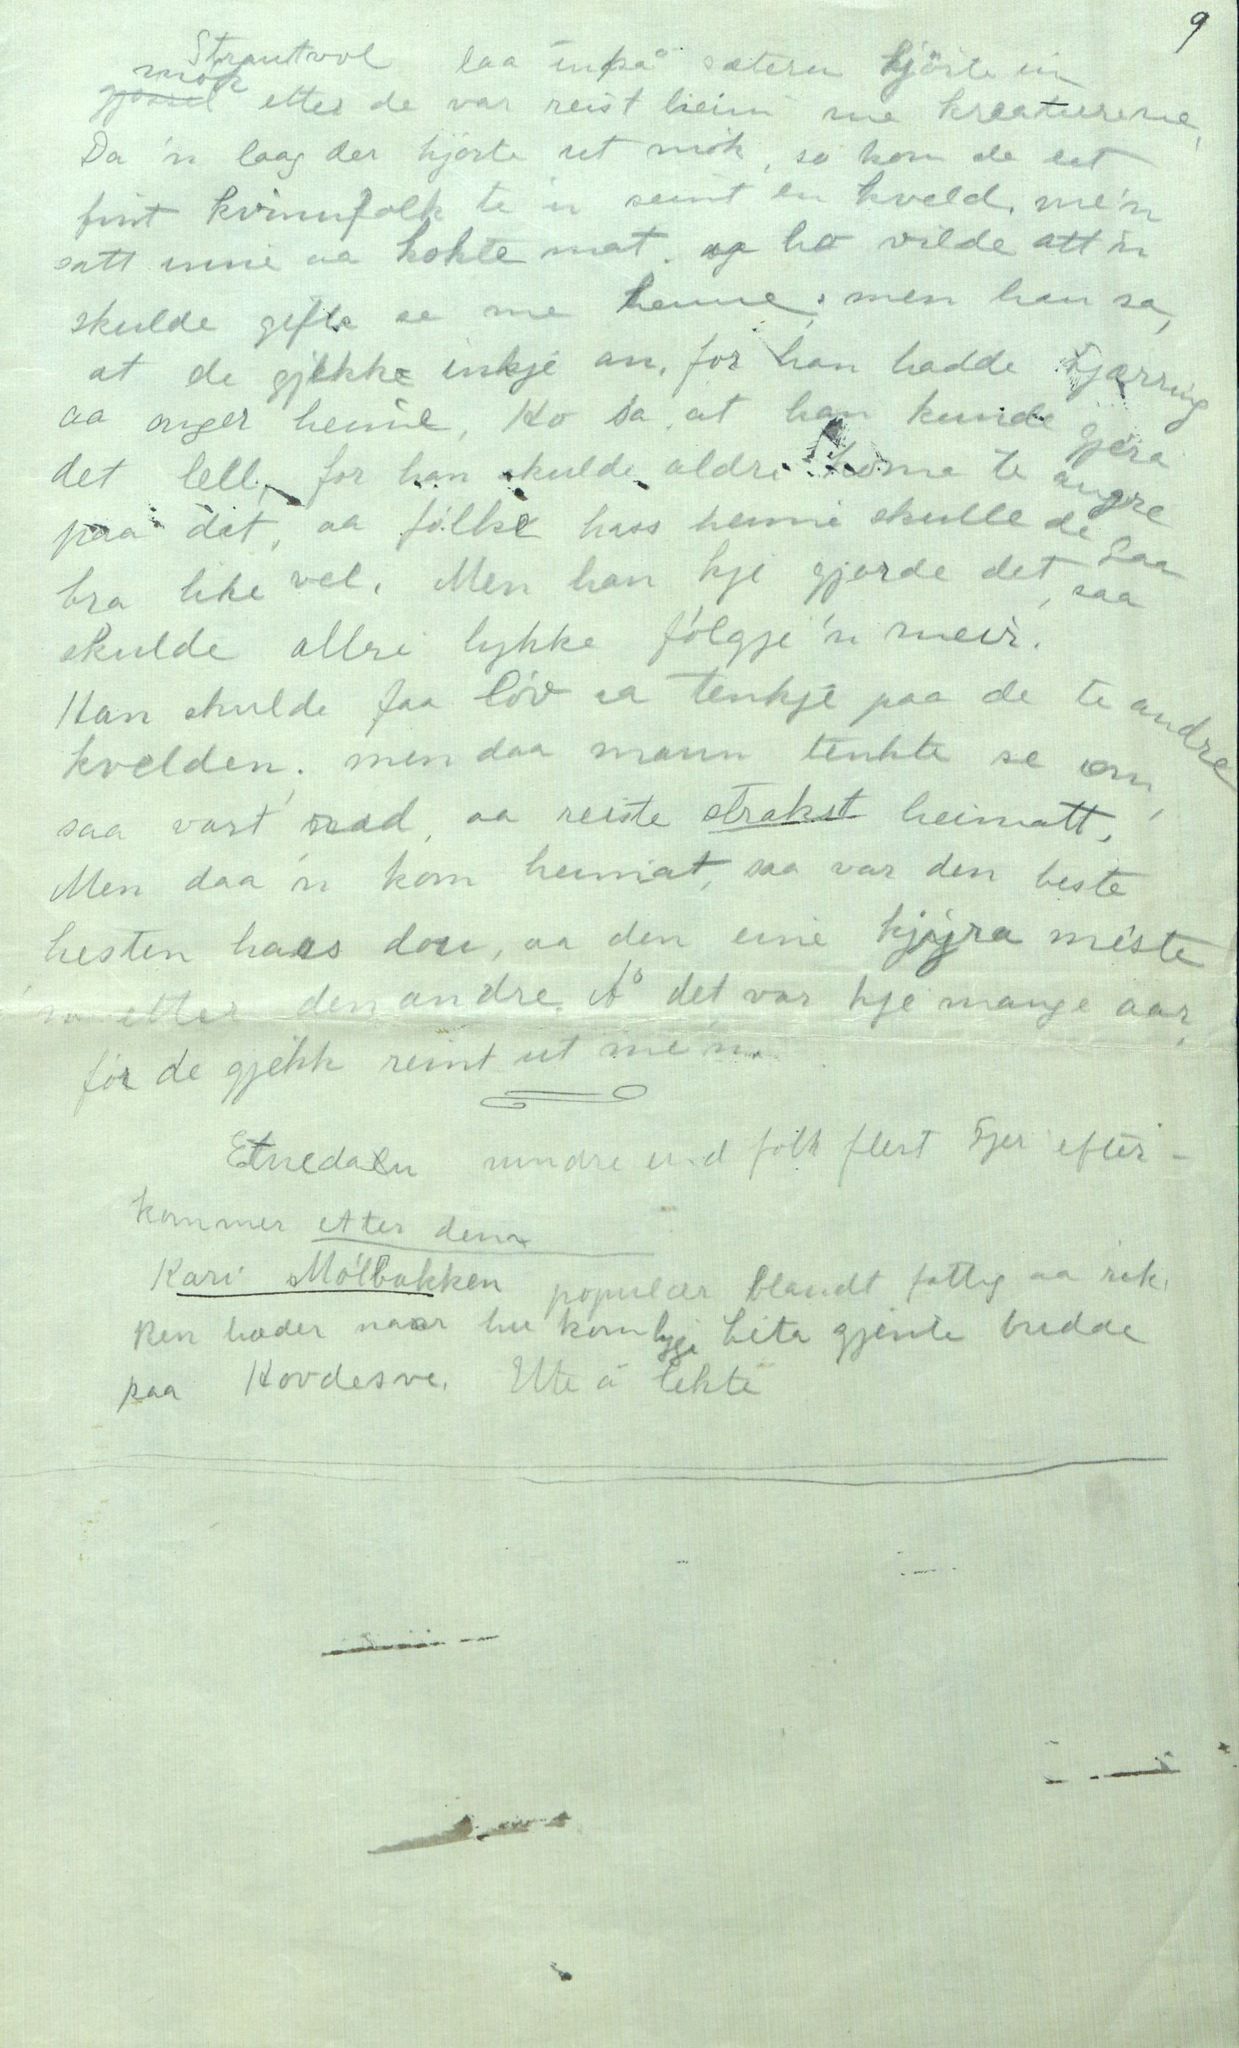 9
Strautvol laa inpå sætern kjörte in
mök
gjössel etter de var reist heim me kreaturerne,
Da 'n laag der kjörte ut mök, so kom de eet
fint kvinnfolk te'n seint en kveld, me'n
satt inne aa kokte mat. og ho vilde att'n
skulde gifte se me henne, men han sa,
at de gjekke inkje an, for han hadde kjærring
aa onger heime, Ho sa at han kunde gjera
det lell, for han skulde aldri koma te angre
paa det, aa folke hass heime skulle de gaa
bra like vel. Men han kje gjorde det, saa
skulde allri lykke fölgje'n meir.
Han skulde faa löv aa tenkje paa de te andre
kvelden, men daa mann tenkte se om,
saa vart rad, aa reiste strakst heimatt,
Men daa'n kom heimat, saa var den beste
hesten haas dou, aa den eine kjyra miste
'n etter den andre. Å det var kje mange aar,
för de gjekk reint ut me'n.
Etnedaln mindre end folk flest kjer efter-
kommer etter dem
Kari Mölbakken populær blandt fattig aa rik.
Ren hæder naar hu kom bygi lita gjente budde
paa Hovdesve. Utte å lekte